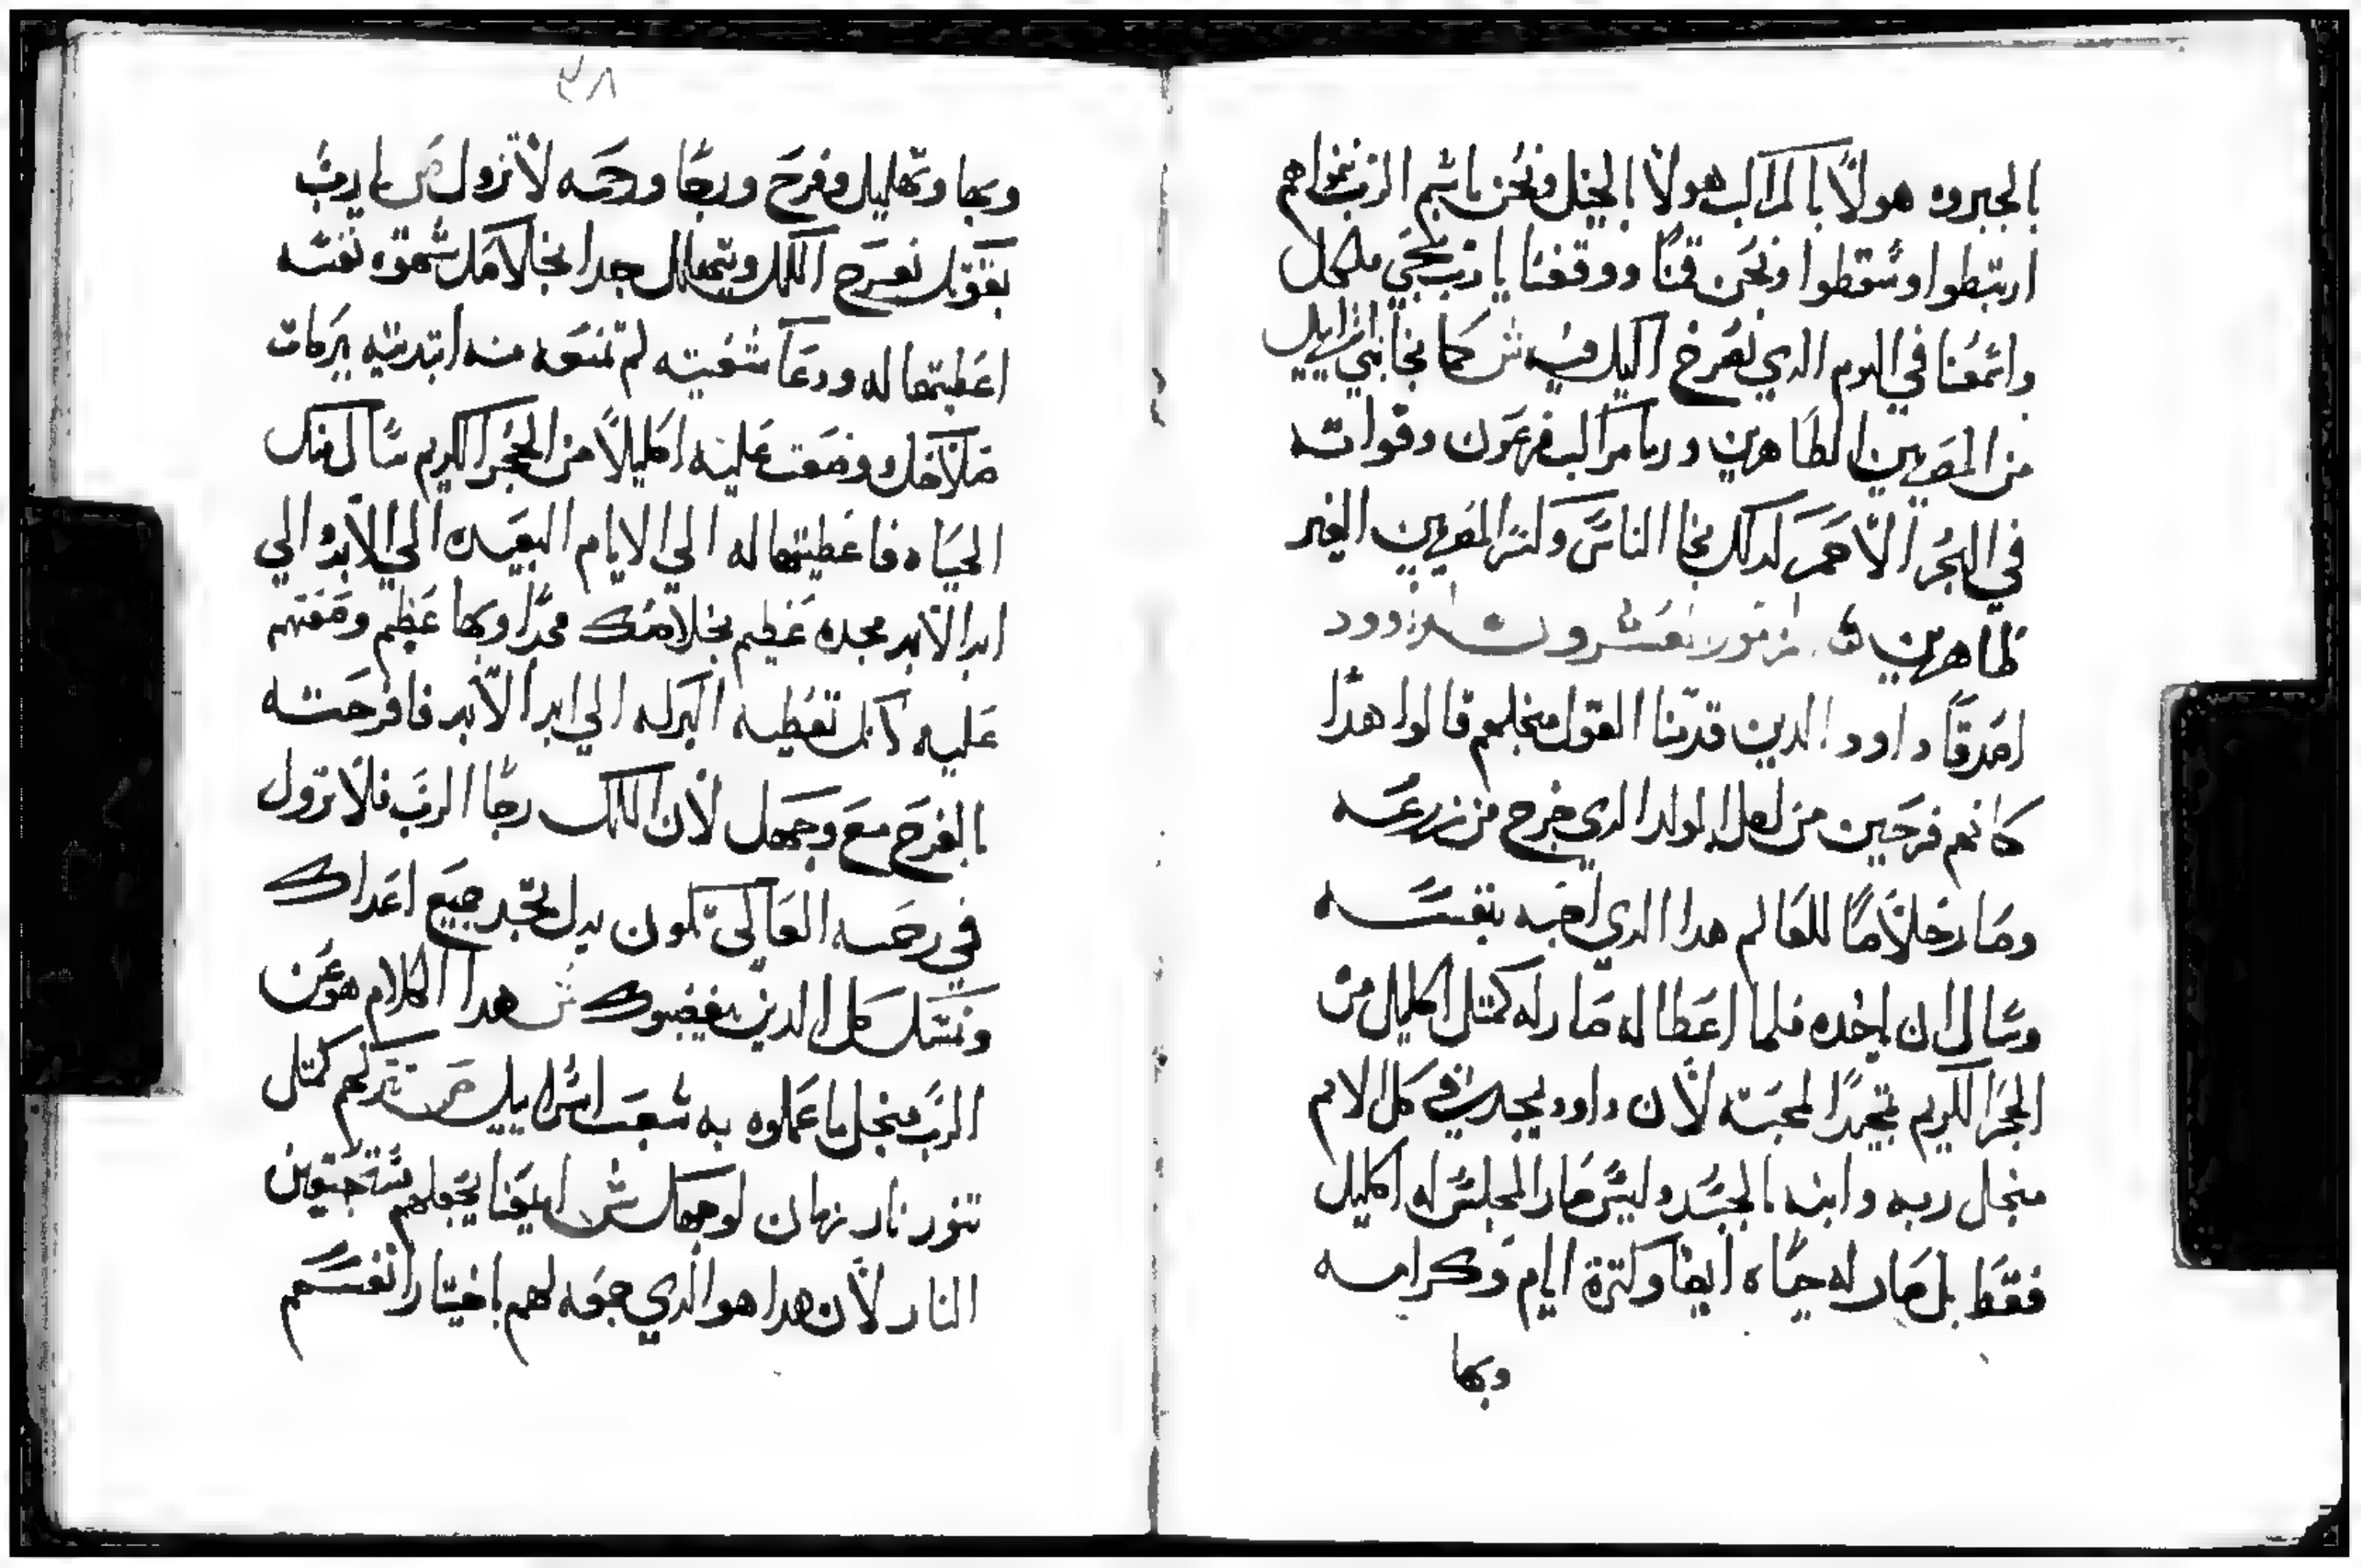 الجبروه هولاء بالمراكب هولا بالخيل ونحن باسم الرب ننموا هم
ارتبطوا وسقطوا ونحن قمنا ووقفنا يا رب نجي ملكك
واسمعنا في اليوم الدي نصرخ اليك فيه ش كما نجا بني اسراييل
من المصريين الظاهرين ورما مراكب فرعون وقواته
في البحر الاحمر كدلك نجا الناس من المصريين الغير
ظاهرين مزمور العشرون لداوود
اصدقا داود الدين قدمنا القول منجلهم قالوا هدا
كانهم فرحين من لعل الولد الدي خرج من زرعه
وصار خلاصا للعالم هدا الدي احبه بنفسه
وسال ان ياخده فلما اعطا له صار له كمتل اكليل من
الحجر الكريم تمجيدا لمحبته لان داود يمجد في كل الامم
منجل ربه وابنه بالجسد وليس صار المجلس له اكليل
فقط بل صار له حياه ايضا وكترة ايام وكرامه
وبها
٢٨
وبها وتهليل وفرح ورجا ورحمه لا تزول ص يا رب
بقوتك يفرح الملك ويتهلل جدا بخلاصك شهوة نفسه
اعطيتها له ودعا شفتيه لم تمنعه منه ابتديته ببركات
صلاحك ووضعت عليه اكليلا من الحجر الكريم سال منك
الحياه فاعطيتها له الي الايام البعيده الي الابد والي
ابد الابد مجده عظيم بخلاصك مجدا وبها عظيم وضعتهم
عليه لانك تعطيه البركه الي ابد الابد فافرحته
بالفرح مع وجهك لان الملك رجا الرب فلا تزول
في رحمه العالي تكون يدك تجد جميع اعداك
ويمسك كل الدين يبغضوك ش هدا الكلام هو عن
الرب منجل ما عملوه به شعب اسراييل ص تتركهم كمتل
تنور نار زمان لوجهك ش ايضا يجعلهم مستحقين
النار لان هدا هو الدي جمعه لهم باختيار انفسهم